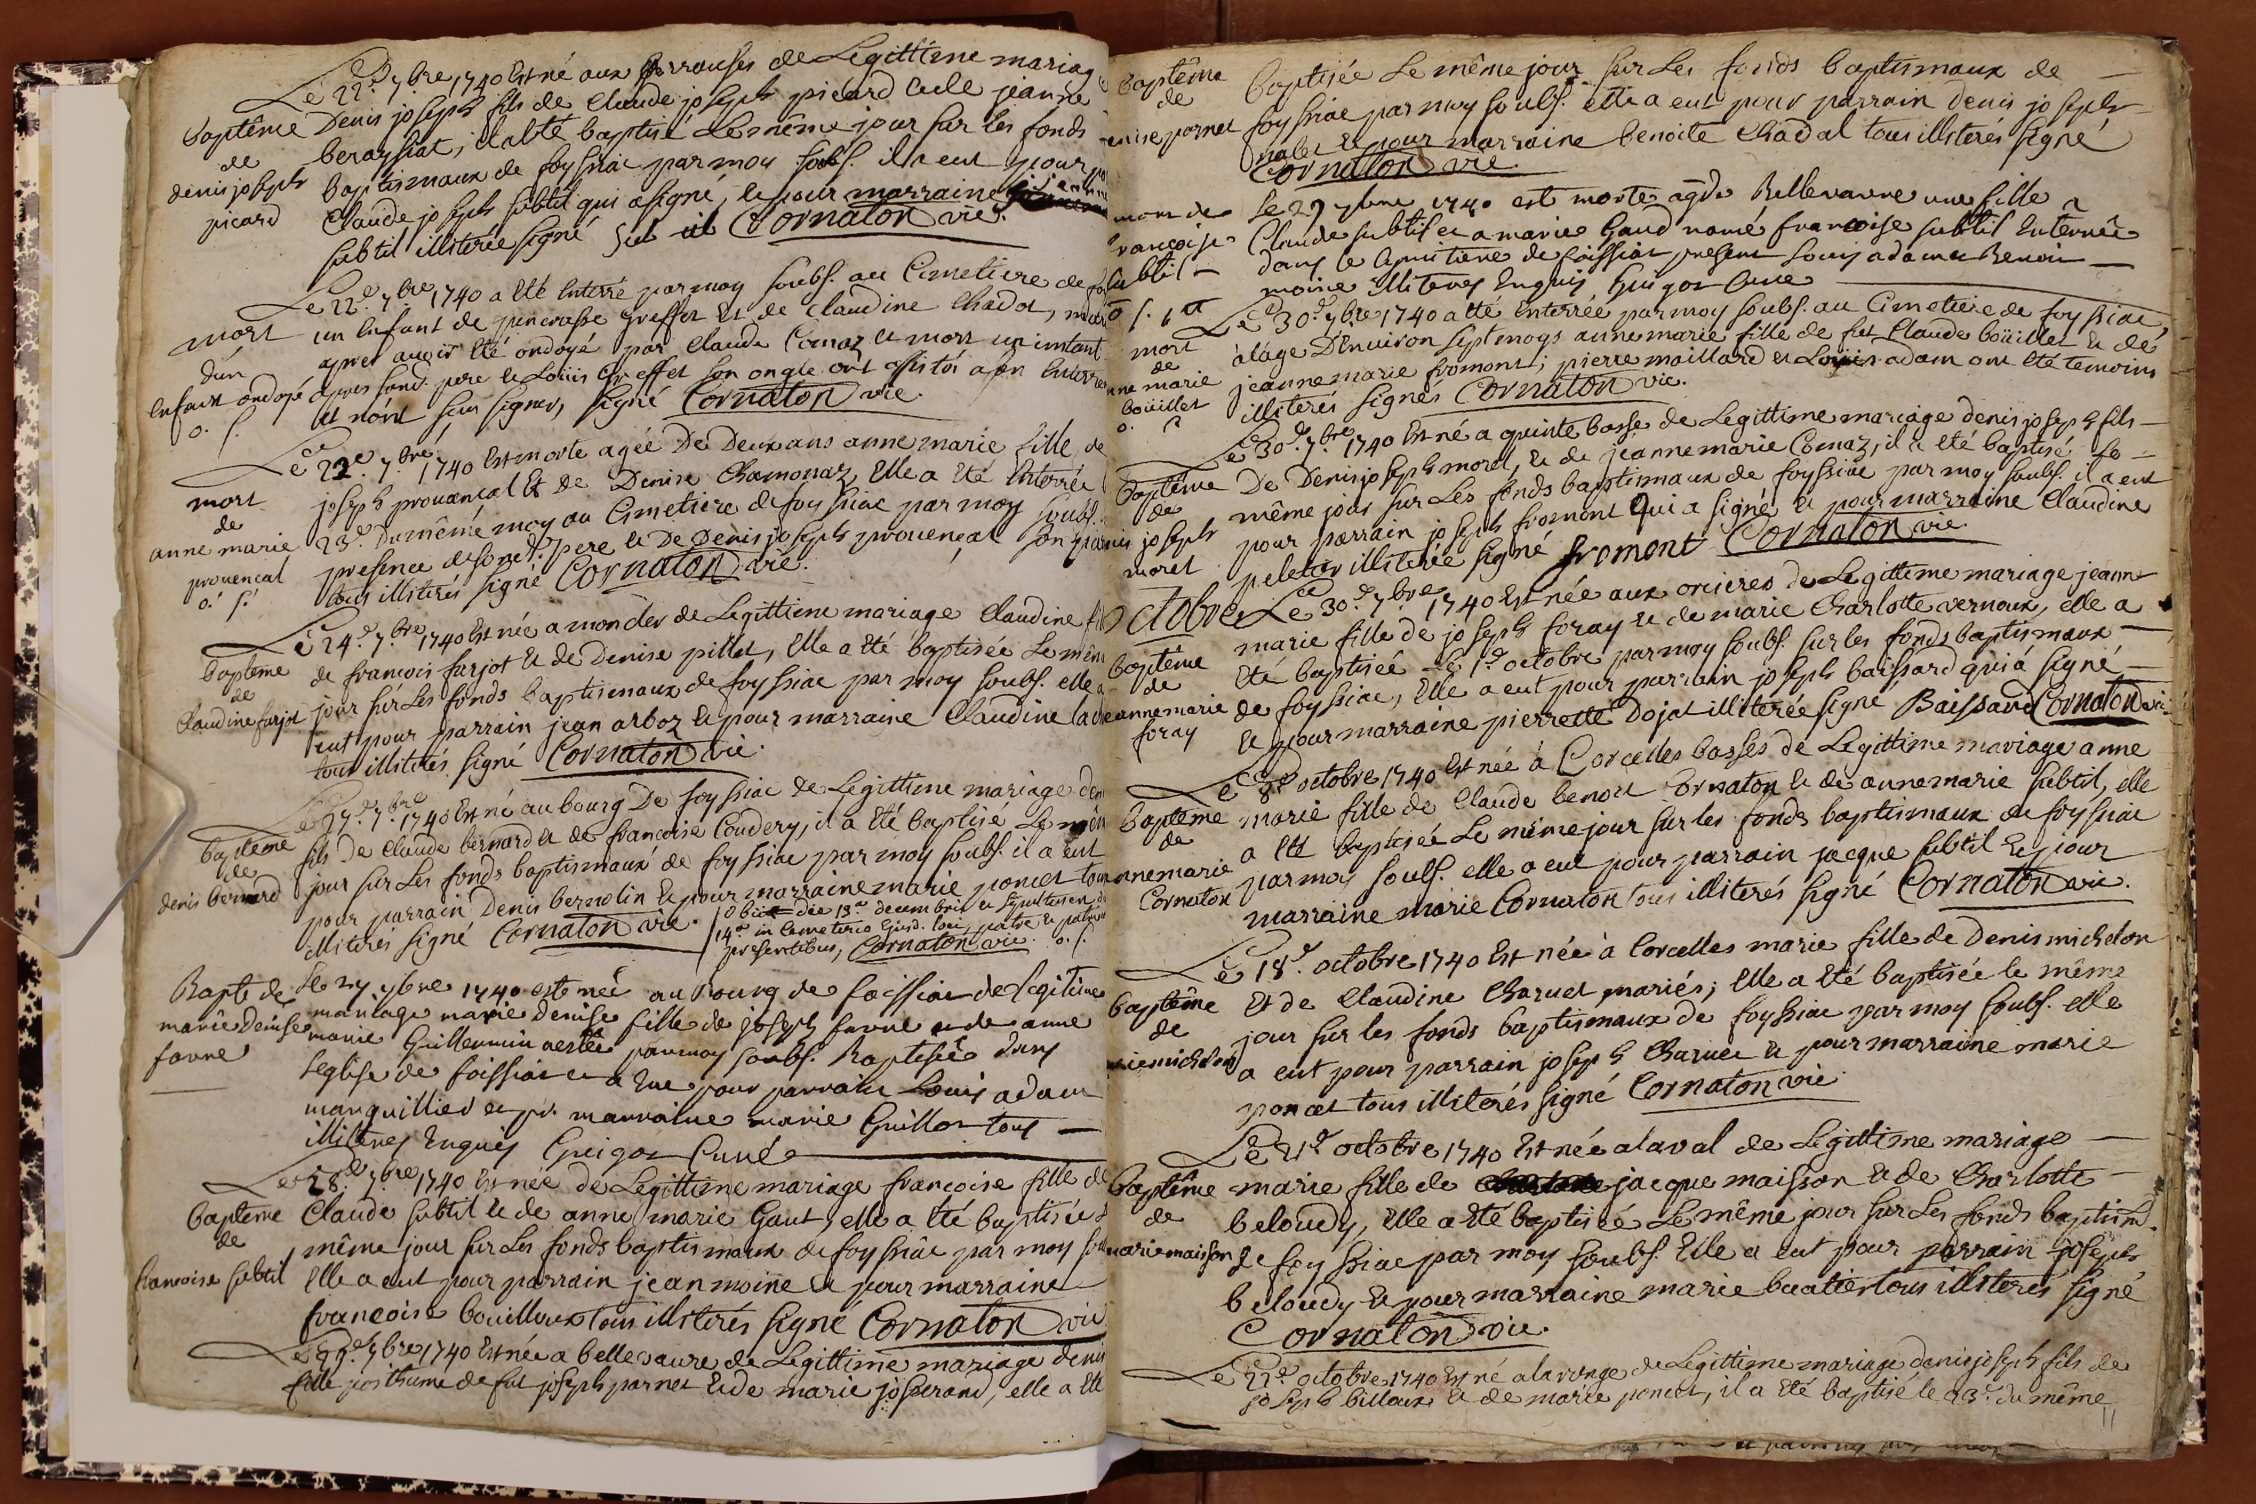 Le 22.e 7.bre 1740 Est né aux perrouses de Legittime mariage
Baptême Denis joseph fils de Claude joseph picard et de jeanne
de berayssiat, il a été baptisé le même jour sur les fonds
denis joseph Baptismaux de foyssiac par moy soubs. il a eut pour
picard Claude joseph subtil qui a signé, et pour marraine
subtil illiterée signé Cornaton vic.
Le 22.e 7.bre 1740 a été Enterré par moy soubs. au Cimetiere de
mort un Enfant de greffet Et de Claudine Chadot,
d'un apres avoir Eté ondoyé par Claude Comaz et mort un instant
Enfant ondoyé apres pere et Loüis Greffet son oncle ont assistés a son Enterre
o. f. et n'ont sceu signer, signé Cornaton vic.
Le 22.e 7.bre 1740 Est morte agée De Deux ans anne marie fille de
mort joseph provencal Et de Denise Chamonaz, Elle a Eté Enterrée
de 23.e Du même moy au Cimetiere de foyssiac par moy soubs.
anne marie presence de son d. pere et De Denis joseph provençal son
provencal tous illiterés signé Cornaton vic.
o. f.
Le 24.e 7.bre 1740 Est née a mondes de Legittime mariage Claudine
baptême de francois furjot et de Denise pillet, Elle a Eté baptisée Le même
de jour sur Les fonds baptismaux de foyssiac par moy soubs. elle a
Claudine furjot eut pour parrain jean arboz et pour marraine Claudine
tous illiterés signé Cornaton vic.
Le 27.e 7.bre 1740 Est né au bourg De foyssiac de Legittime mariage
baptême fils De Claude bernard et de francoise Coudery, il a Eté baptisé Le même
de jour sur Les fonds baptismaux de foyssiac par moy soubs. il a eut
denis bernard pour parrain Denis bernolin et pour marraine marie poncet tous
illiterés signé Cornaton vic.
obiit die 13.a decembris et sepultus
14.a in Cemeterio Ejusd. loci, patre et patrino
presentibus, Cornaton vic. o. f.
Bapt. de Le 27 7bre 1740 est neé au Bourg de foissiac de legitime
marie denise mariage marie denise fille de joseph favre et de anne
favre marie Guillermin et a este par moy soubs. Baptiseé dans
leglise de foissiac et a Eue pour parrain Louis adam
marguillier et pr. marraine marie Guillot tous
illiteres Enquis Guigot Curé
Le 28.e 7.bre 1740 Est née de Legittime mariage francoise fille de
baptême Claude subtil et de anne marie Gaut, elle a Eté baptisée
de même jour sur Les fonds baptismaux de foyssiac par moy
francoise subtil Elle a eut pour parrain jean moine et pour marraine
francoise bouilloux tous illiterés signé Cornaton vic
Le 29.e 7.bre 1740 Est née a bellevavre de Legittime mariage denise
fille posthume de fut joseph parnet et de marie josserand, elle a Eté
baptême Baptisée Le même jour sur Les fonds baptismaux de
de foyssiac par moy soubs. elle a eut pour parrain denis joseph
denise parnet nalet et pour marraine benoite Chadal tous illiterés signé
Cornaton vic
mort de Le 29 7bre 1740 est morte agée Bellevavre une fille a
francoise Claude subtil et a marie Gaud nomé francoise subtil Enterrée
subtil dans le Cimitiere de foissiat present Louis adam et Benoit
moine illiteres Enquis Guigot Cure
Le 30.e 7.bre 1740 a été Enterrée par moy soubs. au Cimetiere de foyssiac,
mort à l'âge D'Environ sept moys anne marie fille de fut Claude boüillet et de
de jeanne marie fromont; pierre maillard et Loüis adam ont Eté temoins
anne marie illiterés signés Cornaton vic.
boüillet
Le 30.e 7.bre 1740 Est né a quinte basse de Legittime mariage denis joseph fils
baptême De Denis joseph morel, et de jeanne marie Comaz, il a Eté baptisé Le
de même jour sur Les fonds baptismaux de foyssiac par moy soubs. il a eut
denis joseph pour parrain joseph fromont Qui a signé et pour marraine Claudine
morel peletier illiterée signé fromont Cornaton vic
Octobre Le 30.e 7.bre 1740 Est née aux orcieres de Legittime mariage jeanne
marie fille de joseph foray et de marie Charlotte vernoux, elle a
baptême Eté baptiseé Le 1.er octobre par moy soubs. sur les fonds baptismaux
de de foyssiac, Elle a eut pour parrain joseph baissard qui a signé
jeanne marie et pour marraine pierrette Dojat illiterée signé Baissard Cornaton vic
foray
Le 8.e octobre 1740 Est née à Corcelles basses de Legittime mariage anne
baptême marie fille de Claude benoit Cornaton et de anne marie subtil, elle
de a Eté baptisée Le même jour sur les fonds baptismaux de foyssiac
anne marie par moy soubs. elle a eut pour parrain jacque subtil Et pour
Cornaton marraine marie Cornaton tous illiterés signé Cornaton vic.
Le 18.e octobre 1740 Est née à Corcelles marie fille de Denis michelon
baptême Et de Claudine Charuet mariés; Elle a Eté baptisée le même
de jour sur les fonds baptismaux de foyssiac par moy soubs. elle
marie michelon a eut pour parrain joseph Charuet et pour marraine marie
poncet tous illiterés signé Cornaton vic.
Le 21.e octobre 1740 Est née a laval de Legittime mariage
baptême marie fille de jacque maisson et de Charlotte
de beloudy, Elle a Eté baptisée Le même jour sur Les fonds baptism.
marie maisson de foyssiac par moy soubs. Elle a eut pour parrain joseph
beloudy et pour marraine marie buatier tous illiterés signé
Cornaton vic.
Le 22.e octobre 1740 Est né a la vronge de Legittime mariage denis joseph fils de
joseph billoux et de marie poncet, il a Eté baptisé le 23.e du même